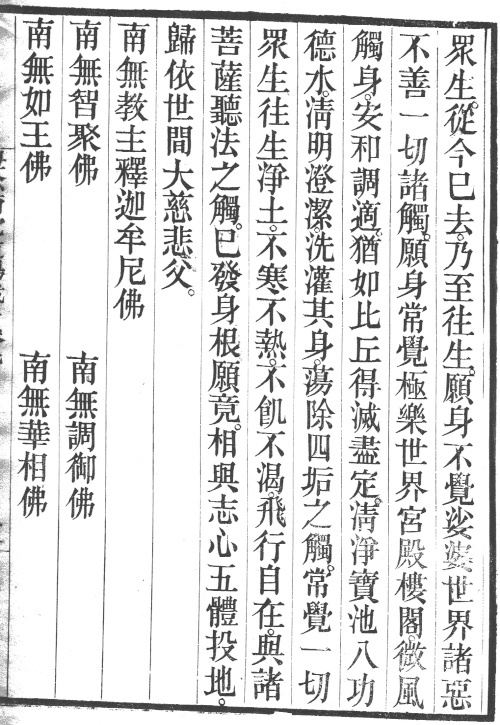 眾生。從今已去。乃至往生。願身不覺娑婆世界諸惡
不善一切諸觸。願身常覺極樂世界宮殿樓閣。微風
觸身。安和調適。猶如比丘得滅盡定。清淨寶池八功
德水。清明澄潔。洗灌其身。蕩除四垢之觸。常覺一切
眾生往生淨土。不寒不熱。不飢不渴。飛行自在。與諸
菩薩聽法之觸。已發身根願竟。相與志心五體投地。
歸依世間大慈悲父。
南無教主釋迦牟尼佛
南無智聚佛　南無調御佛
南無如王佛　南無華相佛